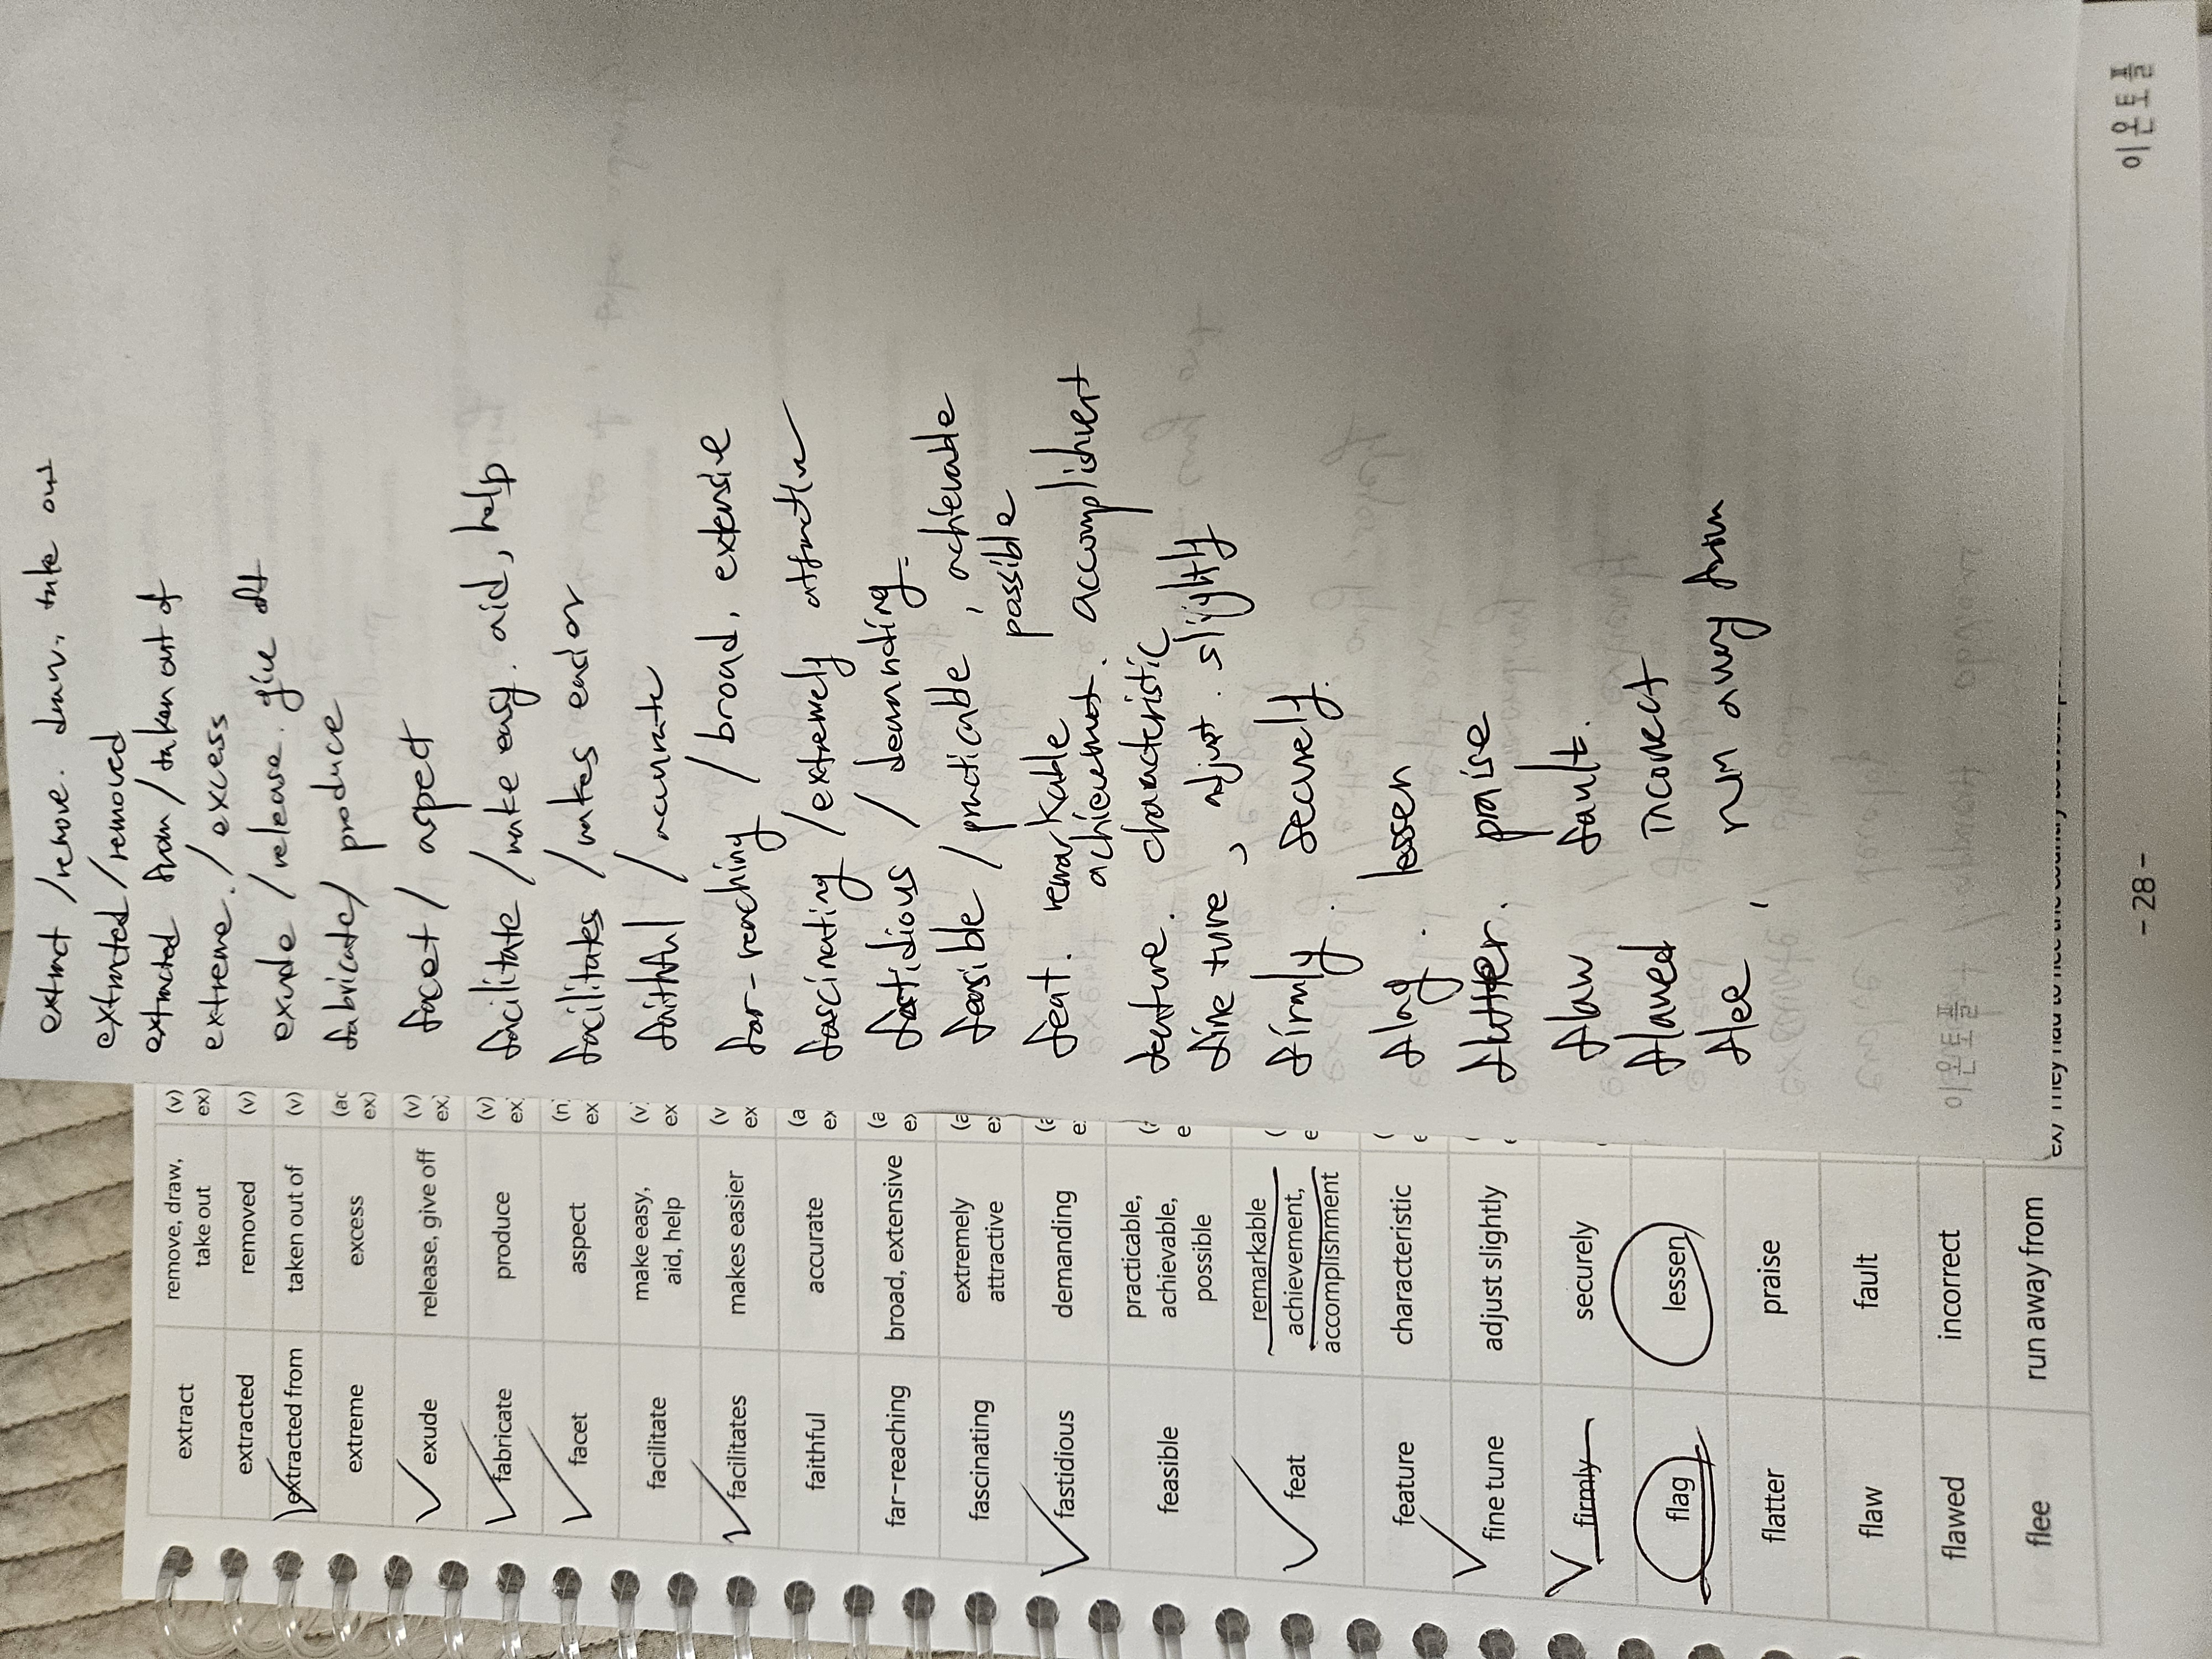 extract /remove. draw, take out
extracted /removed
extracted from /taken out of
extreme. / excess
exude /release. give off
fabricate/ produce
facet / aspect
facilitate /make easy. aid, help
facilitates /makes easier
faithful / accurate
far-reaching /broad, extensive
fascinating /extremely attractive
fastidious / demanding
feasible /practicable , achievable
possible
feat. remarkable
achievement. accomplishment
feature. characteristic
fine tune , adjust. slightly
firmly. securely.
flag. lessen
flatter. praise
flaw fault.
flawed incorrect
flee , run away from
extract remove, draw, take out (v) ex)
extracted removed (v)
extracted from taken out of (v)
extreme excess ex)
exude release, give off (v)
fabricate produce (v)
facet aspect
facilitate make easy, aid, help
facilitates makes easier
faithful accurate
far-reaching broad, extensive
fascinating extremely attractive
fastidious demanding
feasible practicable, achievable, possible
feat remarkable achievement, accomplishment
feature characteristic
fine tune adjust slightly
firmly securely
flag lessen
flatter praise
flaw fault
flawed incorrect
flee run away from
- 28 -
이온토플
이온토플